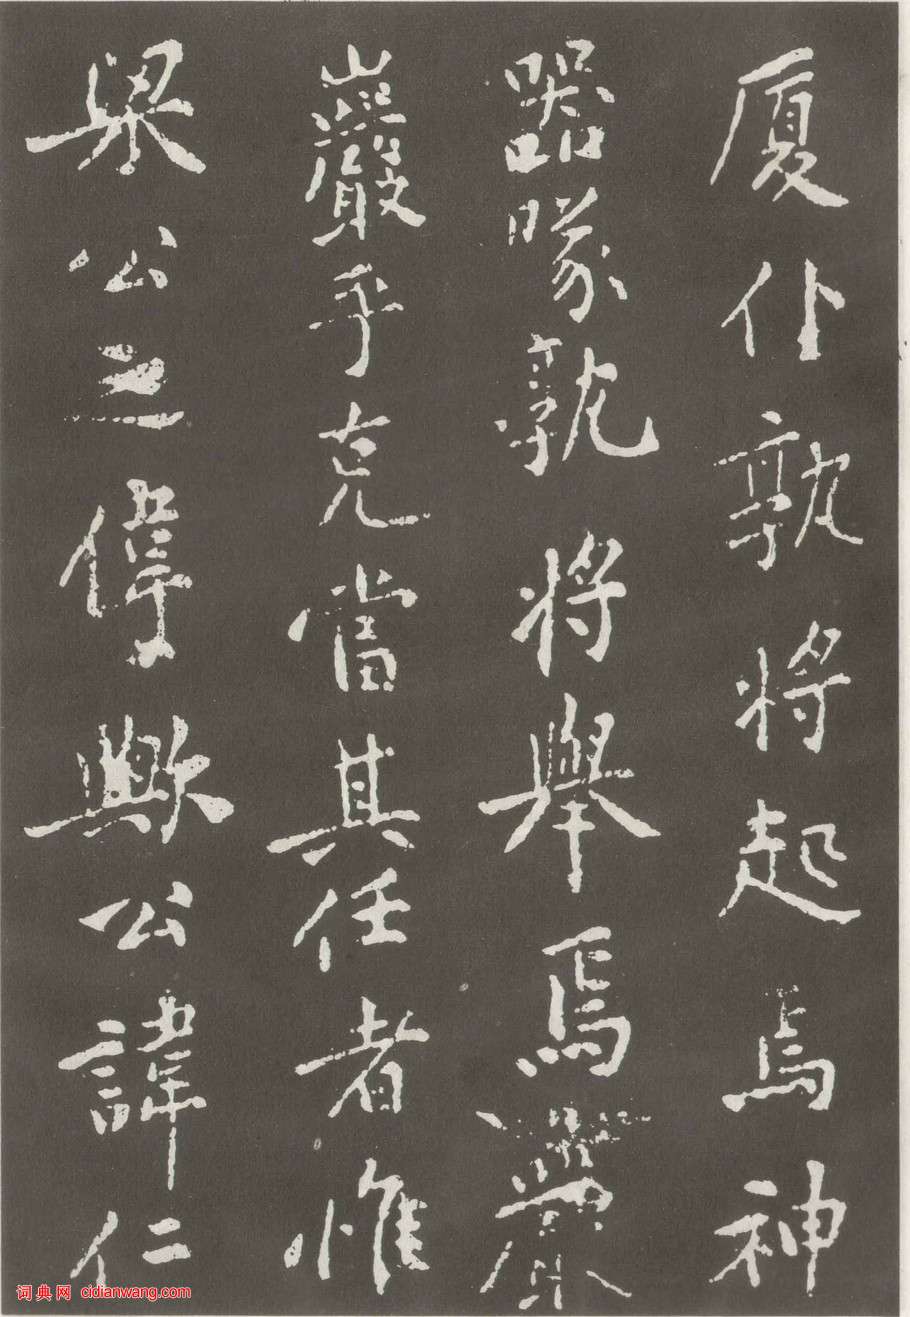 厦仆孰將起焉神
器隊孰將舉焉巖
巖乎克當其任者惟
梁公之偉歟公諱仁
词典网 cidianwang.com